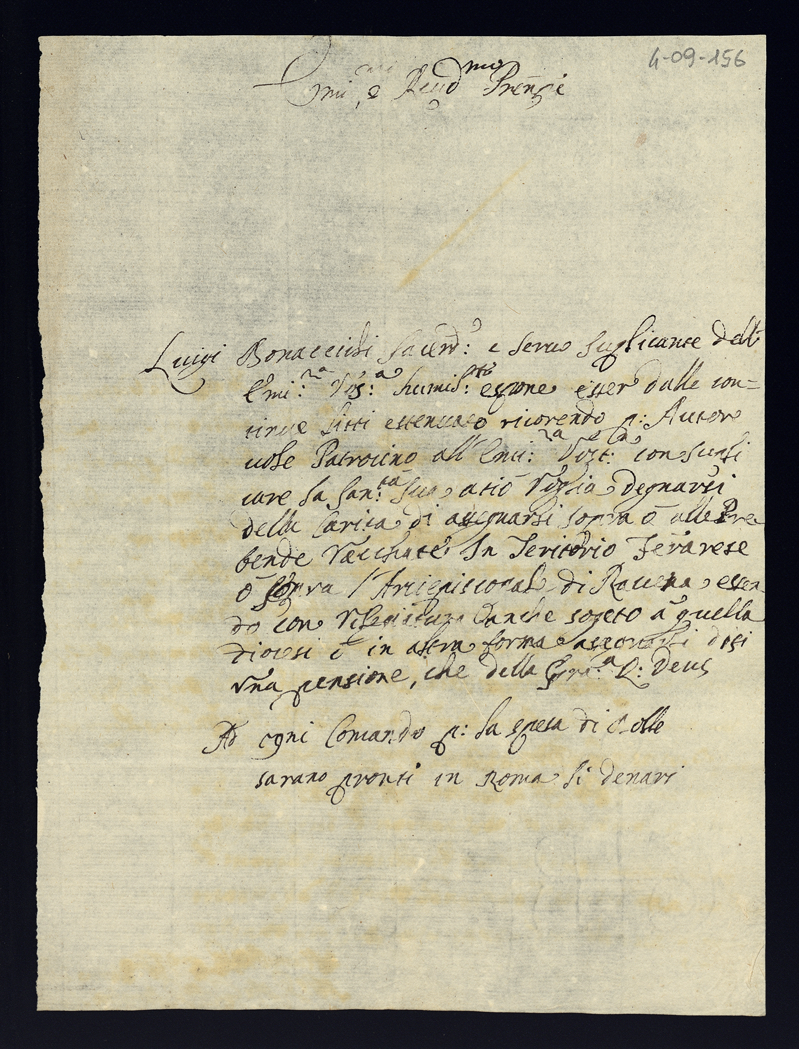 4-09-156
Emi.mi e Reud.mo Prencipe
Luigi Bonacciosi Sacerd: e servo suplicante dell'
Emi:za Vos:a humil:te espone esser dalle con=
tinue litti estenuato ricorendo p: Autore
uole Patrocino all'Emi:za Vost:a con supli
care la San:ta Sua acio Voglia degnarsi
della Carita di assegnarsi sopra ò alle Pre
bende Vacchate In Teritorio Ferarese
ò sopra l'Arciepiscopal di Rauena essen
do con anche sogeto à quella
Diocesi ò in altra forma
vna pensione, che della Gra:a Q: Deus
Ad ogni Comando p: la spesa di Bolle
sarano pronti in Roma li denari